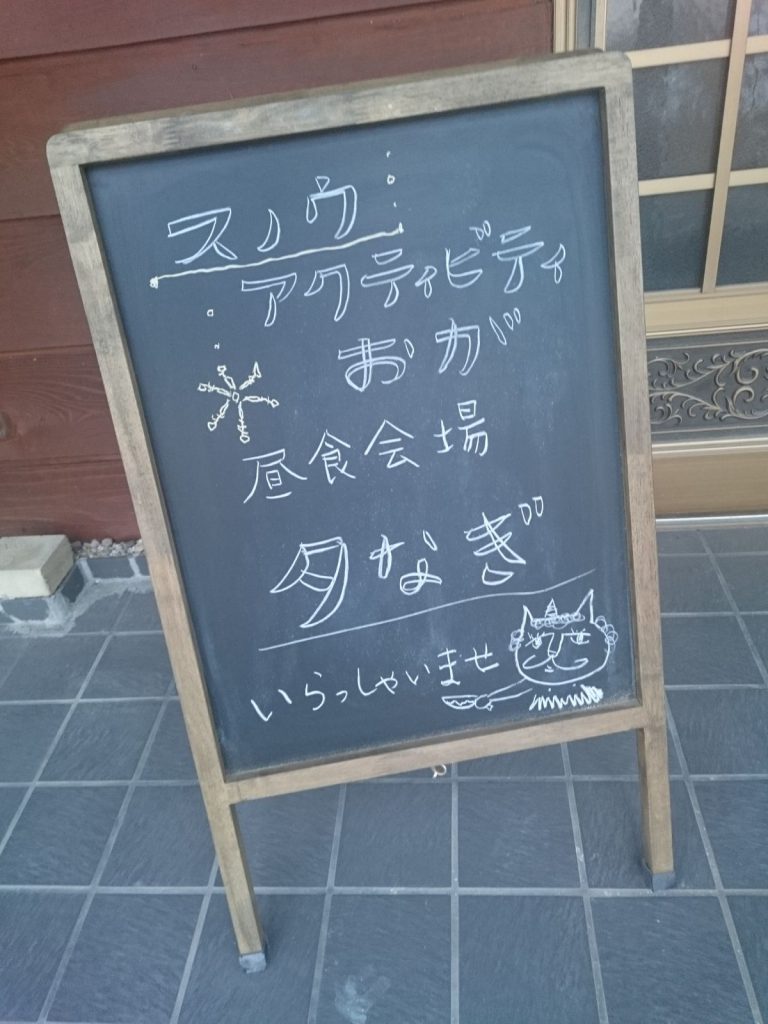 スノウ
アクティビティ
おが
昼食会場
夕なぎ
いらっしゃいませ